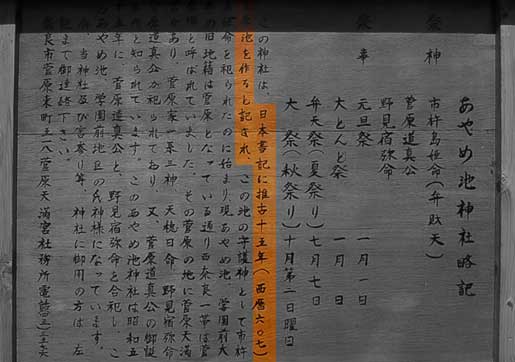 あやめ池神社略記
祭神
市杵島姫命(弁財天)
菅原道真公
野見宿弥命
祭事
元旦祭 一月一日
大とんど祭 一月
弁天祭(夏祭り)七月七日
大祭(秋祭り)十月第二日曜日
この神社は、日本書記に推古十五年(西暦六〇七)
原池を作ると記され、この池の守護神として市杵
姫命を祀られたのに始まり現あやめ池、学園前大
の旧地籍は菅原となっている通り西奈良一帯は菅
と呼ばれていました。その菅原の地に菅原天満
があり、菅原家一草三神、天穂日命、野見宿弥命
原道真公が祀られており、又、菅原道真公の御誕
と知られています。このあやめ池神社は昭和五
十五年に、菅原道真公と、野見宿弥命を合祀し、こ
あやめ池、学園前地区の氏神様になっています。
尚、当神社及び宮参り等、神社に御用の方は、左
記まで御連絡下さい。
奈良市菅原東町五一八菅原天満宮社務所電話